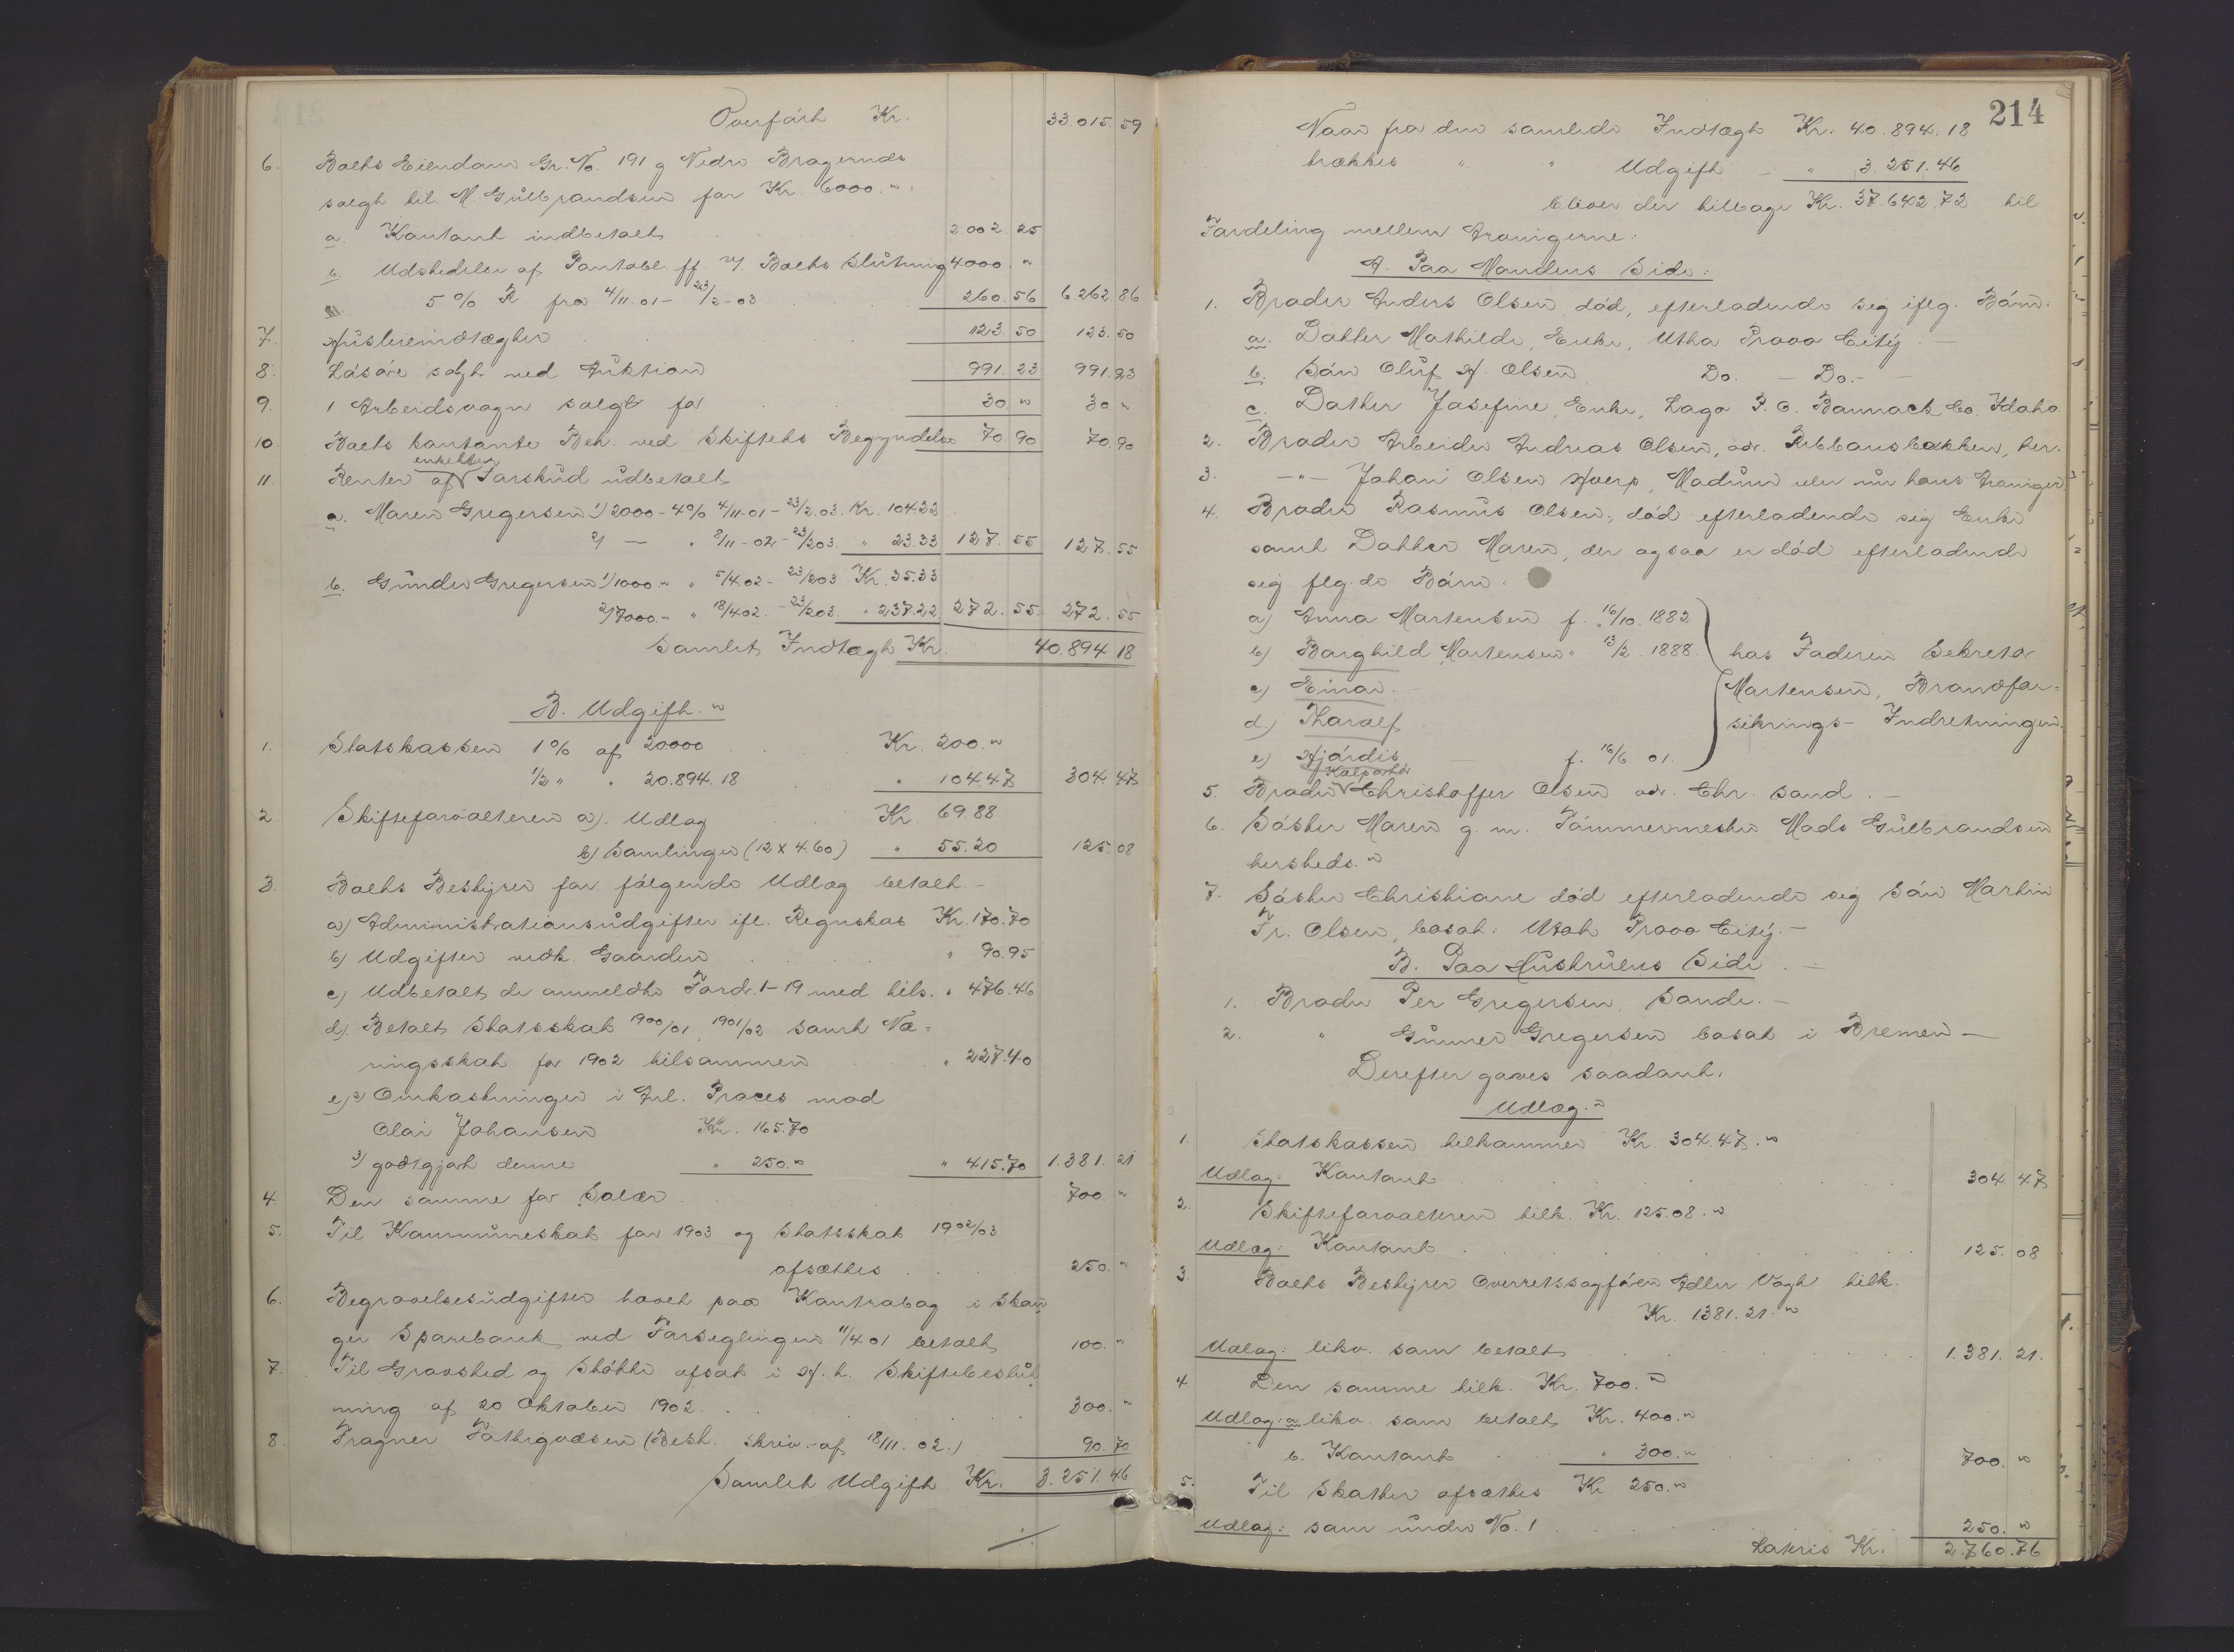 Overført Kr. 33.015.59
6. Boets Eiendom Gr. No. 191 g Nedre Bragernes
solgt til M. Gulbrandsen for Kr. 6000."
a. Kontant indbetalt 2002.25
b. Udstedelse af Pantobl. ff. v/ Boets Slutning 4000."
5 % R. fra 4/11.01 - 23/2-03 260.56 6.262.86
7. Husleieindtægter 123.50 123.50
8. Løsøre solgt ved Auktion 991.23 991.23
9. 1 Arbeidsvogn solgt for 30 " 30 "
10. Boets kontante Beh. ved Skiftets Begyndelse 70.90 70.90
11. Renter af enkelte Forskud udbetalt
a. Maren Gregersen 1) 2000 - 4% 4/11-01 - 23/2.03. Kr. 104.22
2) — " 8/11-02 - 23/203. " 23.33 127.55 127.55
b. Gunder Gregersen 1) 1000 " " 5/4.02 - 23/203 Kr. 35.33
2) 7000." " 18/402. - 23/203. " 237.22 272.55 272.55
Samlet Indtægt Kr. 40.894 18
B. Udgift."
1. Statskassen 1% af 20000 Kr. 200."
1/2 " " 20.894.18 " 104.47 304.47
2. Skifteforvalteren a). Udlæg Kr. 69.88
b) Samlinger (12 x 4.60) " 55.20 125.08
3. Boets Bestyrer for følgende Udlæg betalt -
a) Administrationsudgifter ifl. Regnskab Kr. 170.70
b) Udgifter vedk. Gaarden " 90.95
c) Udbetalt de anmeldte Fordr. 1-19 med tils. " 476.46
d). Betalt Statsskat 1900/01, 1901/02 samt Næ=
ringsskat for 1902 tilsammen " 227.40
e) 2) Omkostninger i Anl. Proces mod
Olai Johansen Kr. 165.70
3) godtgjort denne " 250." " 415.70 1.381.21
4. Den samme for Salær 700."
5. Til Kommuneskat for 1903 og Statsskat 1902/03
afsættes 250."
6. Begravelsesudgifter hævet paa Kontrabog i Skan
ger Sparebank ved Forseglingen 11/4.01 betalt 100."
7. Til Gravsted og Støtte afsat i H. t. Skiftebeslut
ning af 20 Oktober 1902. 300."
8. Fragner (Best. skriv. af 18/11.02.) 90.70
Samlet Udgift Kr. 3.251.46
214
Naar fra den samlede Indtægt Kr. 40.894.18
trækkes " " Udgift — " 3.251.46
bliver der tilbage Kr. 37.642.72 til
Fordeling mellem Arvingerne:
A. Paa Mandens Side:
1. Broder Anders Olsen død, efterladende sig iflg. Børn:
a. Datter Mathilde, Enke, Utha Provo Citÿ. —
b. Søn Oluf A. Olsen Do. — Do. —
c. Datter Josefine, Enke, Lago P. O. Bannack Co. Idaho.
2. Broder Arbeider Andreas Olsen, adr. Ribbansbakken, her.
3. —"— Johan Olsen Hverp, Madum eller nu hans Arvinger
4. Broder Rasmus Olsen, død efterladende sig Enke
samt Datter Maren, der ogsaa er død efterladende
sig flg.de Børn:
a) Anna Martensen f. 16/10. 1882
b) Borghild Martensen " 13/2. 1888. hos Faderen Sekretær
c) Einar. - Martensen, Brandfor-
d.) Tharalf sikrings- Indretningen.
e) Hjørdis — f. 16/6 01.
5. Broder Kolportør Christoffer Olsen adr. Chr. sand. —
6. Søster Maren g. m. Tømmermester Mads Gulbrandsen
hersteds."
7. Søster Christiane død efterladende sig Søn Martin
Fr. Olsen, bosat: Utah Provo Citÿ. —
B. Paa Hustruens Side. —
1. Broder Per Gregersen Sande. —
2. " Gunner Gregersen bosat i Bremen —
Derefter gaves saadant.
Udlæg."
1. Statskassen tilkommer Kr. 304.47."
Udlæg: Kontant 304.47
2. Skifteforvalteren tilk. Kr. 125.08."
Udlæg: Kontant 125.08
3. Boets Bestyrer Overretssagfører Adler Vogt tilk.
Kr. 1381.21."
Udlæg: likv. som betalt 1.381.21.
4. Den samme tilk. Kr. 700."
Udlæg: a likv. som betalt Kr. 400."
b. Kontant " 300." 700."
5. Til Skatter afsættes Kr. 250."
Udlæg: som under No. 1 250."
Lateris Kr. 2.760.76